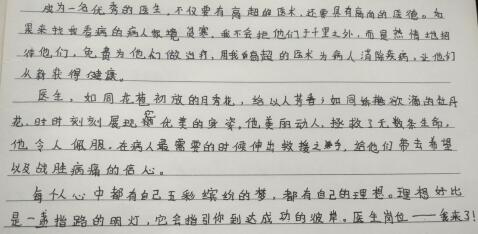 成为一名优秀的医生，不仅要有高超的医术，还要具有高尚的医德。如
果来找我看病的病人很境贫寒，我不会拒他们于千里之外，而是热情地招
待他们，免费为他们做治疗，用我高超的医术为病人消除疾病，让他们
从新获得健康。
医生，如同花苞初放的月季花，给以人芳香；如同娇艳欲滴的牡丹
花，时时刻刻展现优美的身姿。他美丽动人，拯救了无数条生命，
他令人佩服，在病人最需要的时候伸出救援之手，给他们带去希望
以及战胜病痛的信心。
每个人心中都有自己五彩缤纷的梦，都有自己的理想。理想好比
是一盏指路的明灯，它会指引你到达成功的彼岸。医生岗位——我来了！